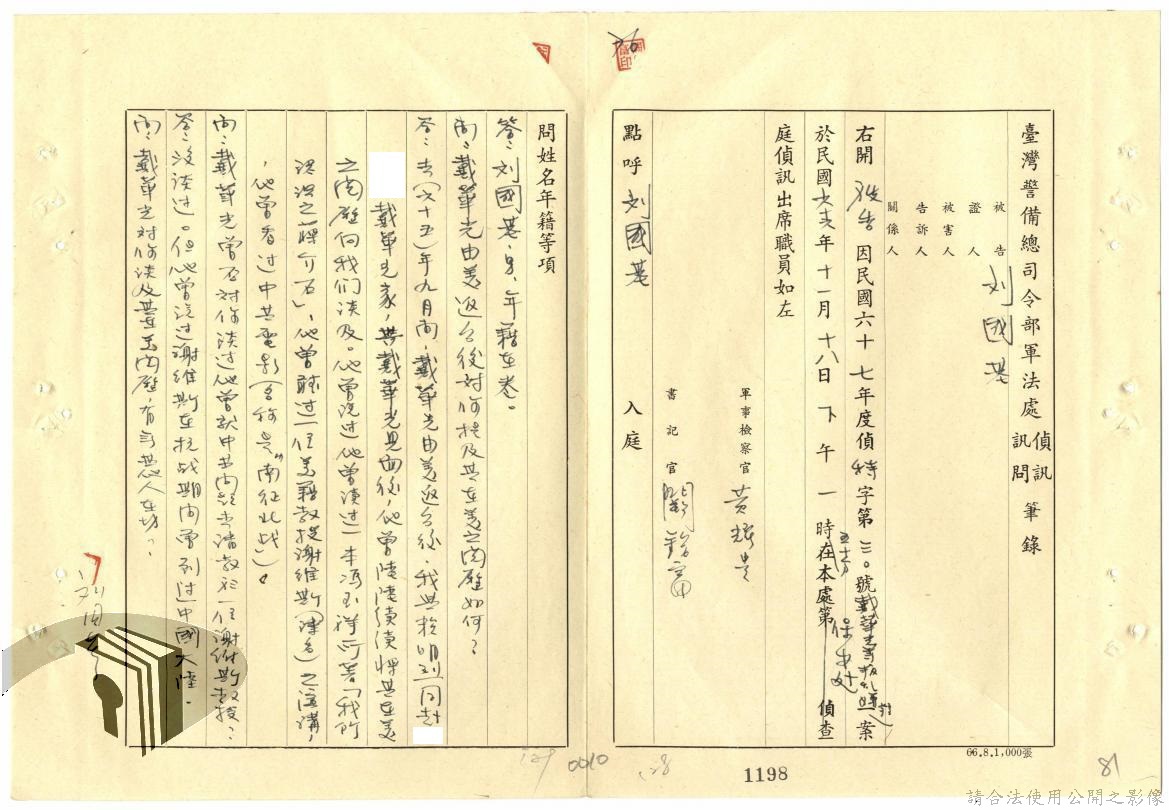 臺灣警備總司令部軍法處偵訊訊問筆錄
被告
證人
被害人
告訴人
關係人
刘國基
右開被告因民國六十七年度偵特字第三〇號戴華光等叛亂嫌一案
於民國六六年十一月十八日下午一時五十分在本處第保安处偵查
庭偵訊出席職員如左
軍事檢察官黃
書記官
點呼刘國基入庭
問姓名年籍等項
答:刘國基,男,年籍在卷。
問:戴華光由美返台後對你提及其在美之閱歷如何?
答:去(六十五)年九月間,戴華光由美返台後,我與賴明烈同赴
戴華光家,與戴華光見面後,他曾陸陸續續將其在美
之閱歷向我们談及。他曾說过他曾讀过一本馮玉祥所著「我所
認识之蔣介石」,他曾聽过一位美籍教授謝維斯(譯名)之演講,
,他曾看过中共電影(名称是"南征北战")。
問:戴華光曾否對你談过他曾就中共問題去請教於一位謝維斯教授?
答:沒談过。但他曾說过謝維斯在抗战期間曾到过中國大陸。
問:戴華光對你談及其在美閱歷,有無其他人在場?
刘国基
66.8.1,000張
1198
0010
129
128
81
請合法使用公開之影像